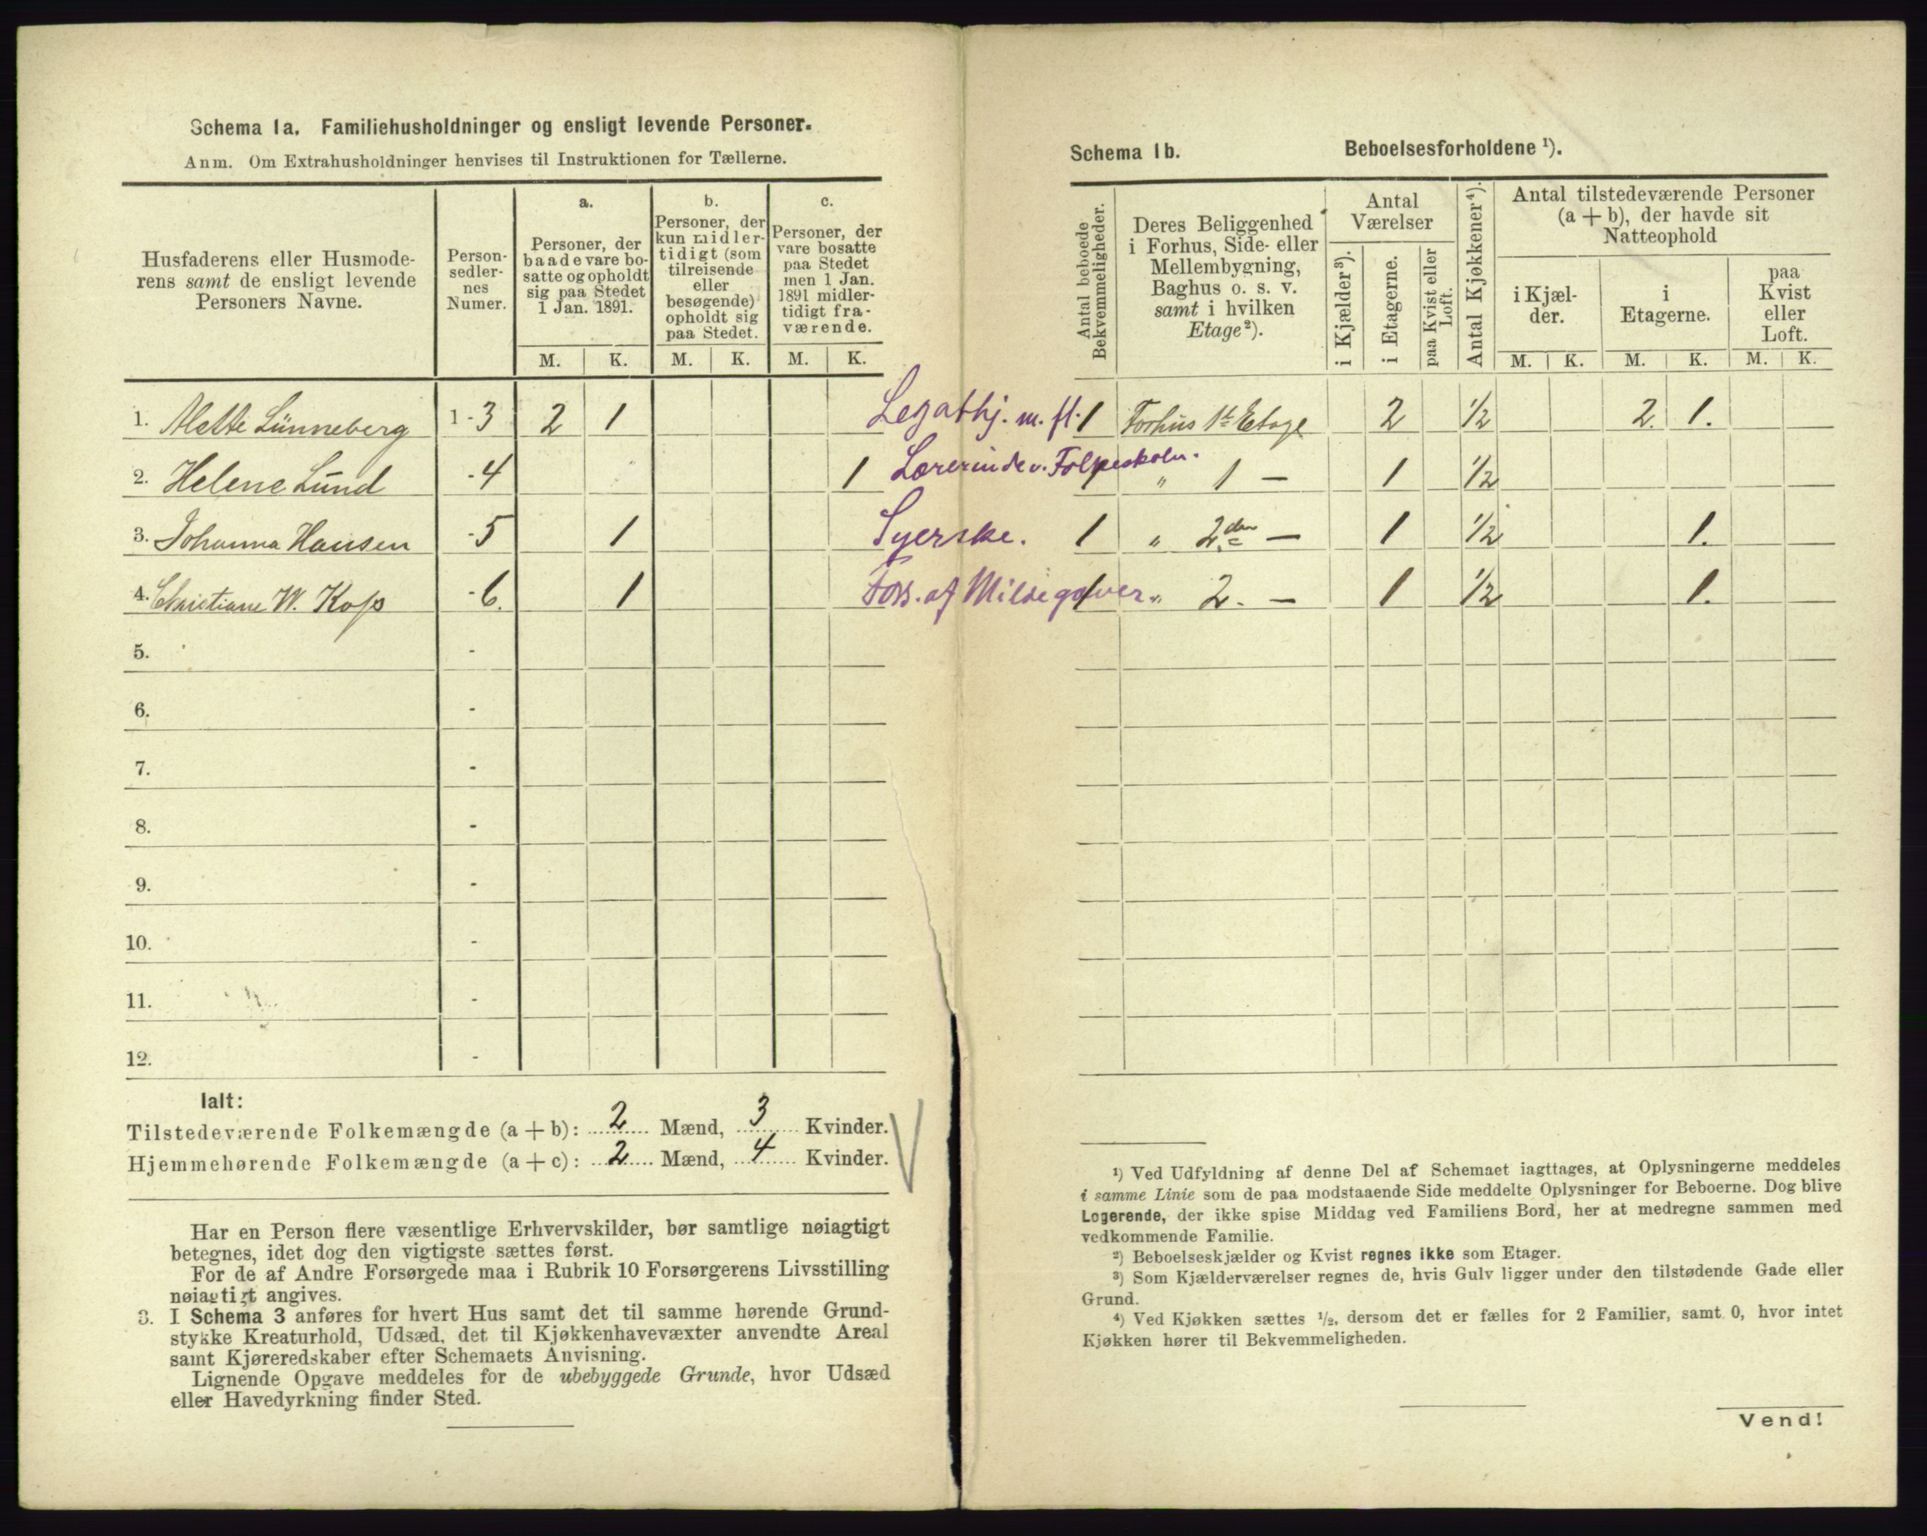 Schema 1a. Familiehusholdninger og ensligt levende Personer.
Anm. Om Extrahusholdninger henvises til Instruktionen for Tællerne.
Husfaderens eller Husmode-
rens samt de ensligt levende
Personers Navne.
Person-
sedler-
nes
Numer.
a.
Personer, der
baade vare bo-
satte og opholdt
sig paa Stedet
1 Jan. 1891.
b.
Personer, der
kun midler-
tidigt (som
tilreisende
eller
besøgende)
opholdt sig
paa Stedet.
c.
Personer, der
vare bosatte
paa Stedet
men 1 Jan.
1891 midler-
tidigt fra-
værende.
M. K. M. K. M. K.
1. Mette Lünneberg 1 - 3 2 1 Legathj. m. fl.
2. Helene Lund - 4 1 Lærerinde v. Folkeskolen.
3. Johanna Hansen - 5 1 Syerske.
4. Christiane W. Kop - 6. 1 Fors. af Milde gaver
5. -
6. -
7. -
8. -
9. -
10. -
11. -
12. -
Ialt:
Tilstedeværende Folkemængde (a + b): 2 Mænd, 3 Kvinder.
Hjemmehørende Folkemængde (a + c): 2 Mænd, 4 Kvinder.
Har en Person flere væsentlige Erhvervskilder, bør samtlige nøiagtigt
betegnes, idet dog den vigtigste sættes først.
For de af Andre Forsørgede maa i Rubrik 10 Forsørgerens Livsstilling
nøiagtigt angives.
3. I Schema 3 anføres for hvert Hus samt det til samme hørende Grund-
stykke Kreaturhold, Udsæd, det til Kjøkkenhavevæxter anvendte Areal
samt Kjøreredskaber efter Schemaets Anvisning.
Lignende Opgave meddeles for de ubebyggede Grunde, hvor Udsæd
eller Havedyrkning finder Sted.
Schema 1b. Beboelsesforholdene ¹).
Antal beboede
Bekvemmeligheder.
Deres Beliggenhed
i Forhus, Side- eller
Mellembygning,
Baghus o. s. v.
samt i hvilken
Etage²).
Antal
Værelser
i Kjælder³).
i Etagerne.
paa Kvist eller
Loft.
Antal Kjøkkener⁴).
Antal tilstedeværende Personer
(a + b), der havde sit
Natteophold
i Kjæl-
der.
i
Etagerne.
paa
Kvist
eller
Loft.
M. K. M. K. M. K.
1 Forhus 1te Etage 2 ½ 2. 1.
1 „ 1 — 1 ½
1 „ 2den — 1 ½ 1.
1 „ 2. — 1 ½ 1.
¹) Ved Udfyldning af denne Del af Schemaet iagttages, at Oplysningerne meddeles
i samme Linie som de paa modstaaende Side meddelte Oplysninger for Beboerne. Dog blive
Logerende, der ikke spise Middag ved Familiens Bord, her at medregne sammen med
vedkommende Familie.
²) Beboelseskjælder og Kvist regnes ikke som Etager.
³) Som Kjælderværelser regnes de, hvis Gulv ligger under den tilstødende Gade eller
Grund.
⁴) Ved Kjøkken sættes ½, dersom det er fælles for 2 Familier, samt 0, hvor intet
Kjøkken hører til Bekvemmeligheden.
Vend!